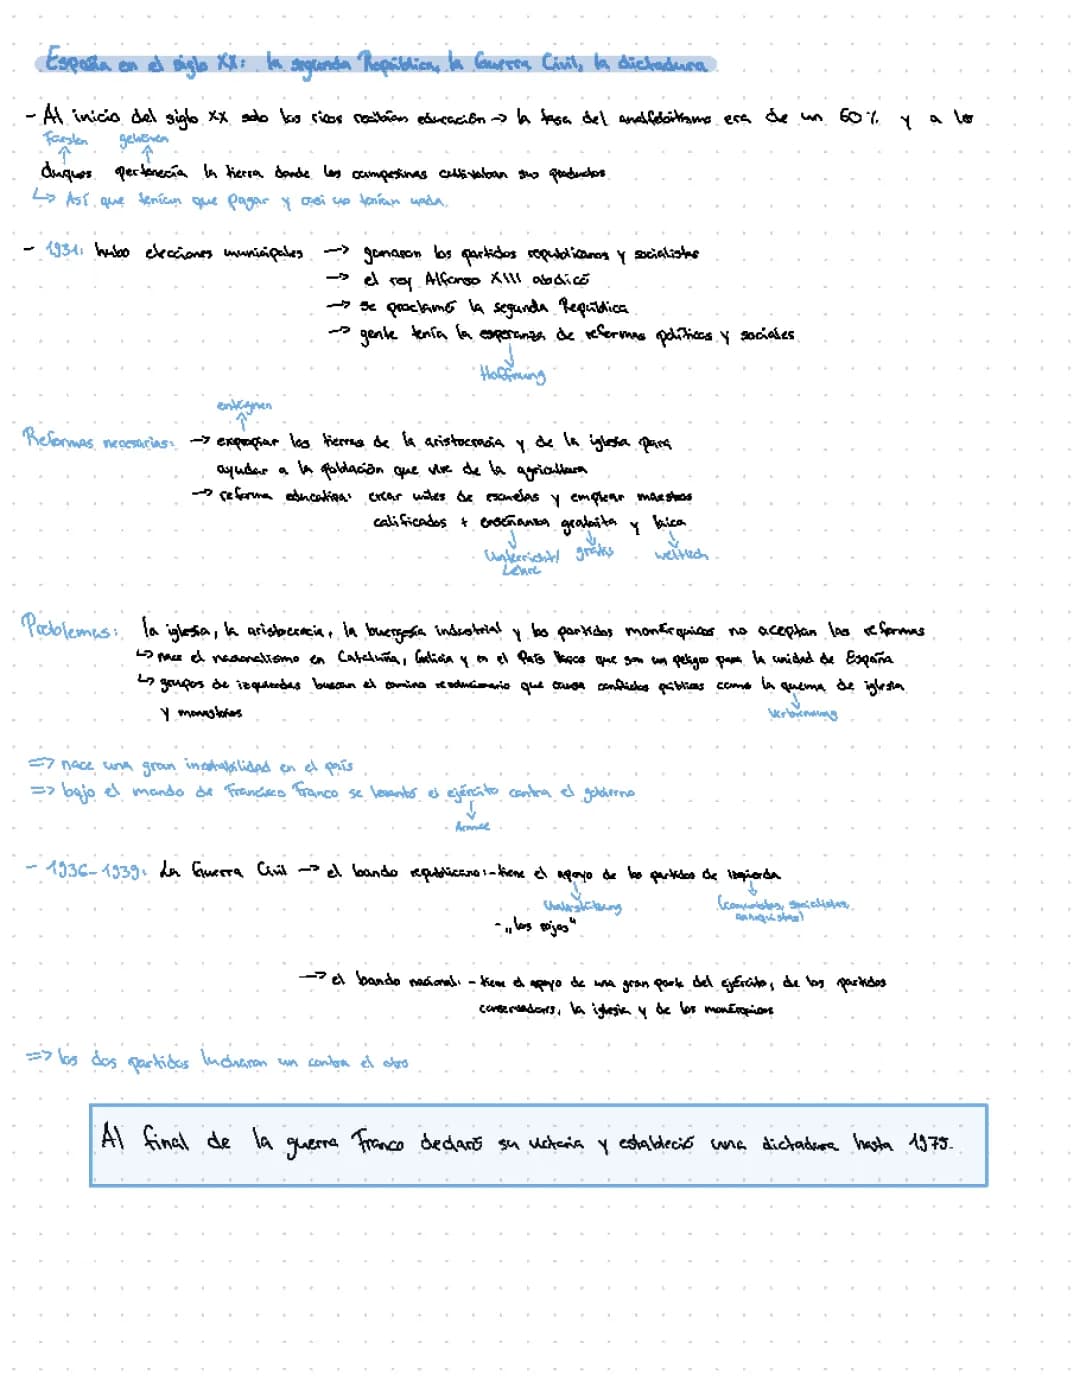 España en el siglo XX: la segunda República, la Guerra Civil, la dictadura
- Al inicio del siglo XX solo los ricos recibían educación → la tasa del analfabetismo era de un 60% y a los
Fürsten gehören
duques pertenecía la tierra donde los campesinos cultivaban sus productos
↳ Así que tenían que pagar y casi no tenían nada.
- 1931: hubo elecciones municipales → ganaron los partidos republicanos y socialistas
→ el rey Alfonso XIII abdicó
→ se proclamó la segunda República
→ gente tenía la esperanza de reformas políticas y sociales
Hoffnung
enteignen
Reformas necesarias: → expropiar las tierras de la aristocracia y de la iglesia para
ayudar a la población que vive de la agricultura
→ reforma educativa: crear miles de escuelas y emplear maestros
calificados + enseñanza gratuita y laica
Unterricht/ gratis weltlich
Lehre
Problemas: la iglesia, la aristocracia, la buergesía industrial y los partidos monárquicos no aceptan las reformas
↳ nace el nacionalismo en Cataluña, Galicia y en el País Vasco que son un peligro para la unidad de España
↳ grupos de izquierdas buscan el camino revolucionario que causa conflictos públicos como la quema de iglesia
y monasterios
Verbrennung
=> nace una gran inestabilidad en el país
=> bajo el mando de Francisco Franco se levantó el ejército contra el gobierno
Armee
- 1936-1939: La Guerra Civil → el bando republicano: - tiene el apoyo de los partidos de izquierda
Unterstützung (comunistas, socialistas,
anarquistas)
- „los rojos"
→ el bando nacional: - tiene el apoyo de una gran parte del ejército, de los partidos
conservadores, la iglesia y de los monárquicos
=> los dos partidos lucharon un contra el otro
Al final de la guerra Franco declaró su victoria y estableció una dictadura hasta 1975.